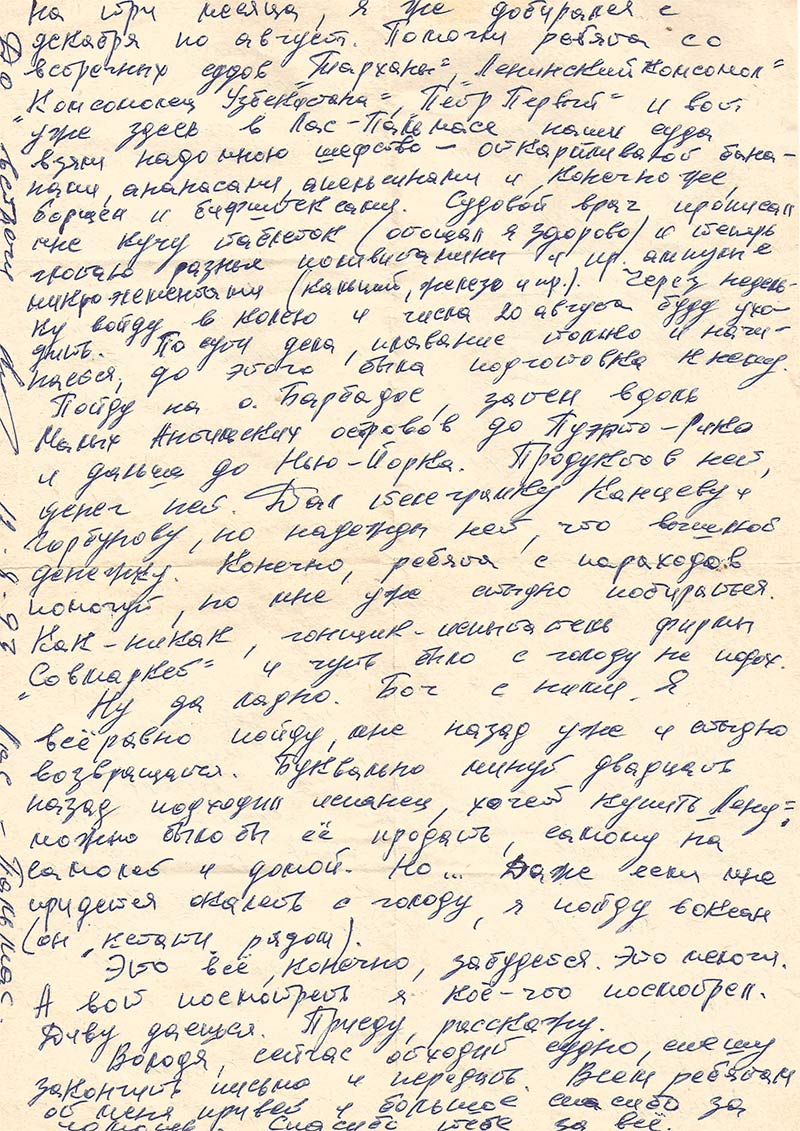 на три месяца, я же добирался с
декабря по август. Помогли ребята со
встречных судов "Тархана", "Ленинский Комсомол"
"Комсомолец Узбекистана", "Пётр Первый" и вот
уже здесь в Лас-Пальмасе наши суда
взяли надо мною шефство – откармливают бана-
нами, ананасами, апельсинами и, конечно же,
борщём и бифштексами. Судовой врач прописал
мне кучу таблеток (отощал я здорово) и теперь
глотаю разные поливитамины и пр. ампулы с
микроэлементами (кальций, железо и пр.). Через недель-
ку войду в колею и числа 20 августа буду ухо-
дить. По сути дела, плавание только и начи-
нается, до этого была подготовка к нему.
Пойду на о. Барбадос, затем вдоль
Малых Антильских островов до Пуэрто-Рико
и дальше до Нью-Йорка. Продуктов нет,
денег нет. Дал телеграмму Канцеву и
Горбунову, но надежды нет, что вышлют
денежку. Конечно, ребята с пароходов
помогут, но мне уже стыдно побираться.
Как-никак, гонщик-испытатель фирмы
"Совмаркет" и чуть было с голоду не подох.
Ну да ладно. Бог с ними. Я
всё равно пойду, мне назад уже и стыдно
возвращаться. Буквально минут двадцать
назад подходил испанец, хочет купить "Лену":
можно было бы её продать, самому на
самолёт и домой. Но... Даже если мне
придется околеть с голоду, я пойду в океан
(он, кстати, рядом).
Это всё, конечно, забудется. Это мелочи.
А вот посмотреть я кое-что посмотрел.
Диву даешься. Приеду, расскажу.
Володя, сейчас отходит судно, спешу
закончить письмо и передать. Всем ребятам
от меня привет и большое спасибо за
помощь. Спасибо тебе за всё.
До встречи 12.8.93 Лас-Пальмас.